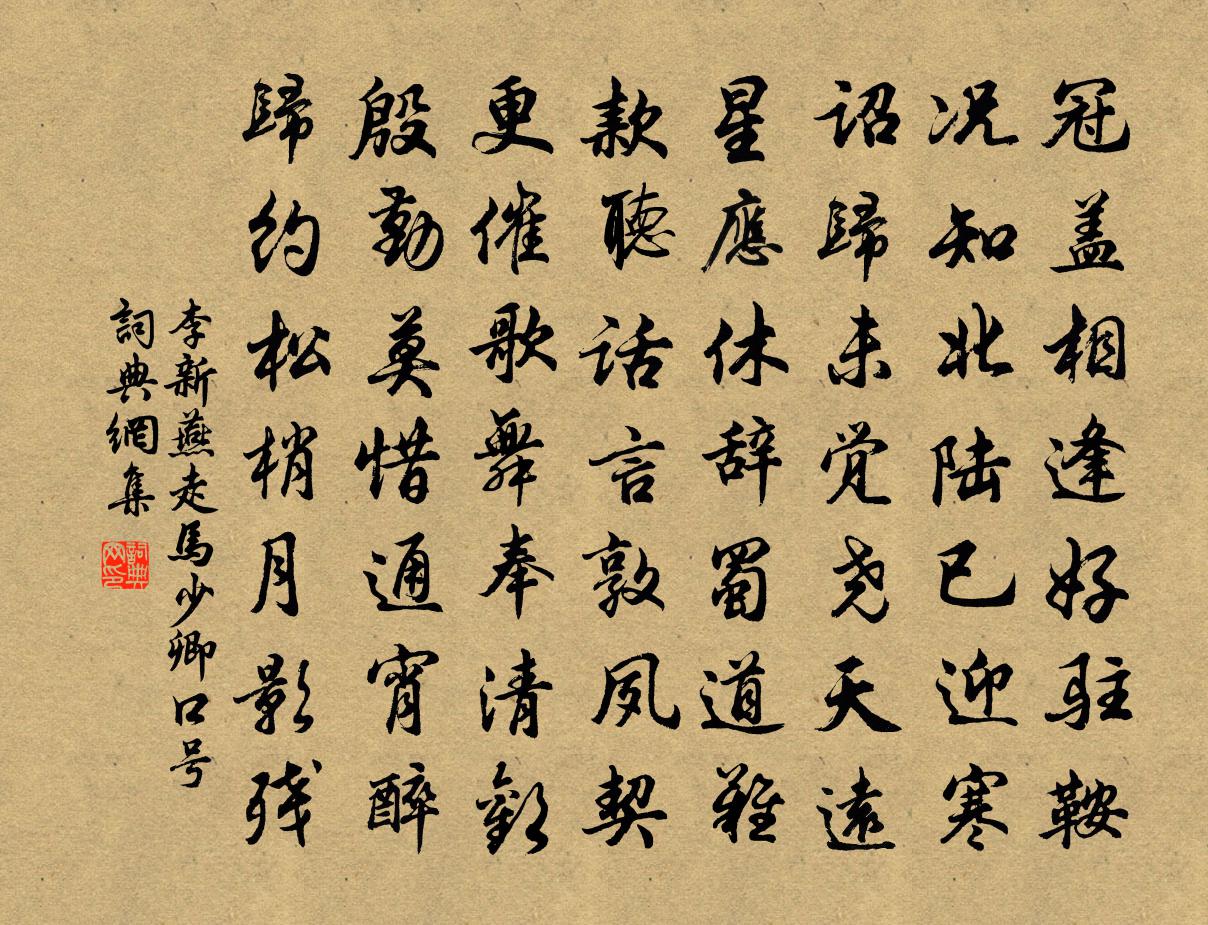 冠盖相逢好驻鞍
况知北陆已迎寒
诏歸未觉尧天遠
星應休辞蜀道難
款聽话言敦夙契
更催歌舞奉清歡
殷勤莫惜通宵醉
歸约松梢月影残
李新燕走馬少卿口号
詞典網集
詞典网印